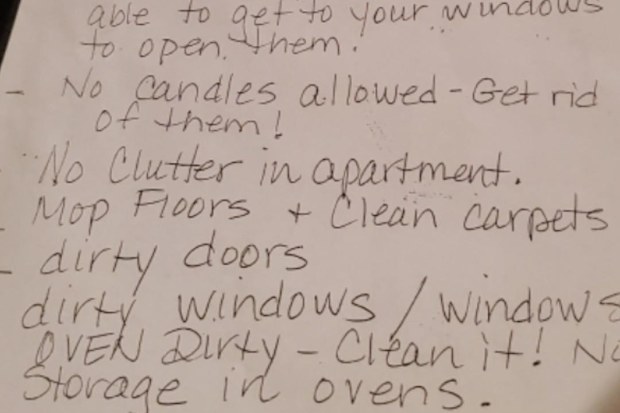 able to get to your windows
to open them.
- No candles allowed - Get rid
of them!
No Clutter in apartment.
- Mop Floors + Clean carpets
- dirty doors
dirty windows / window
OVEN Dirty - Clean it! No
Storage in ovens.